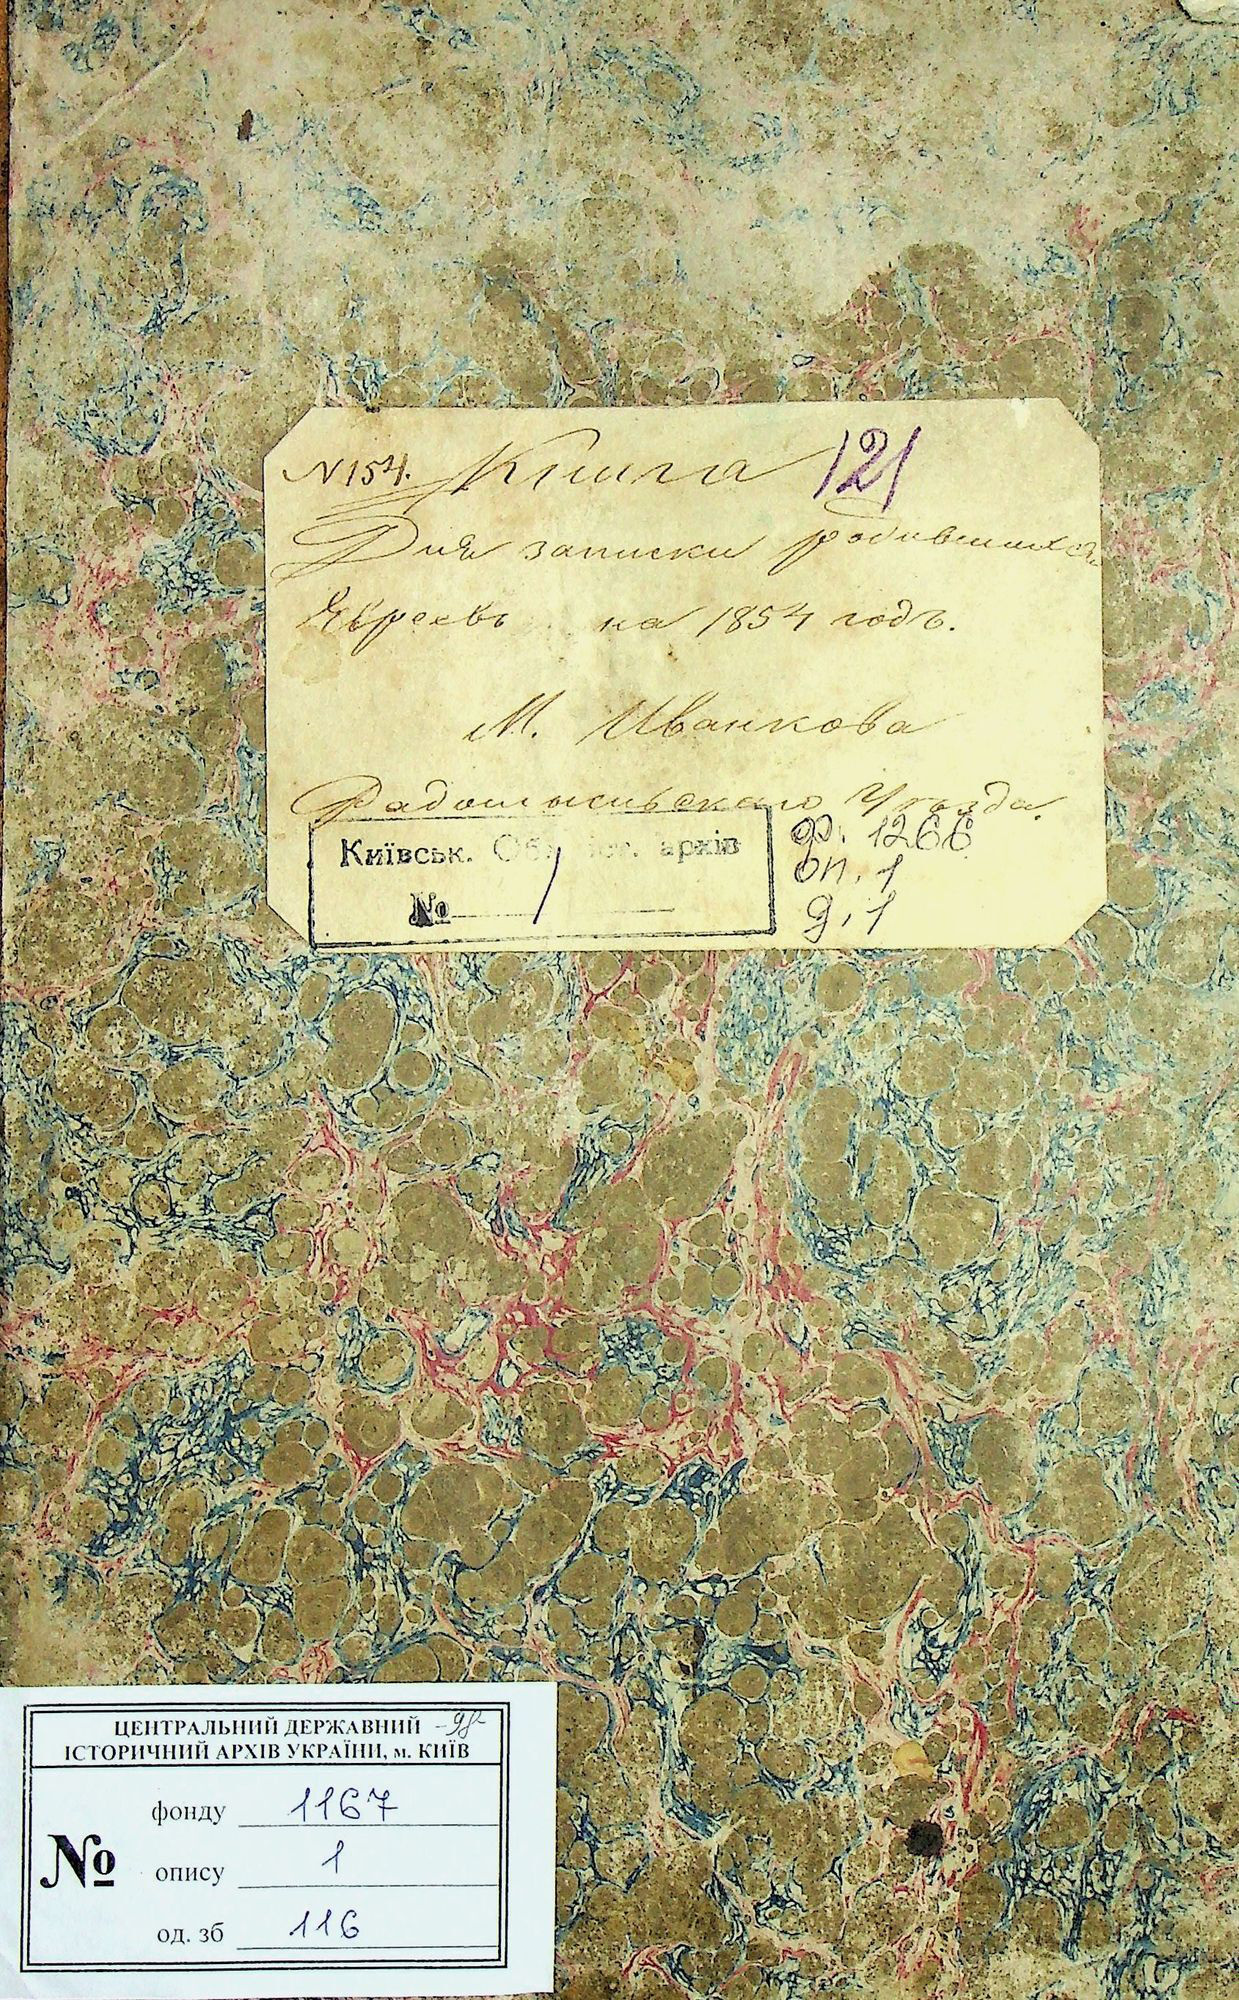 N 154. Книга 121
Для записки родившихся
Евреевъ на 1854 годъ.
М. Иванкова
Радомысльскаго Уезда.
Київськ. архів
№ 1
ф. 1266
оп. 1
д. 1
ЦЕНТРАЛЬНИЙ ДЕРЖАВНИЙ -98-
ІСТОРИЧНИЙ АРХІВ УКРАЇНИ, м. КИЇВ
фонду 1167
№ опису 1
од. зб 116